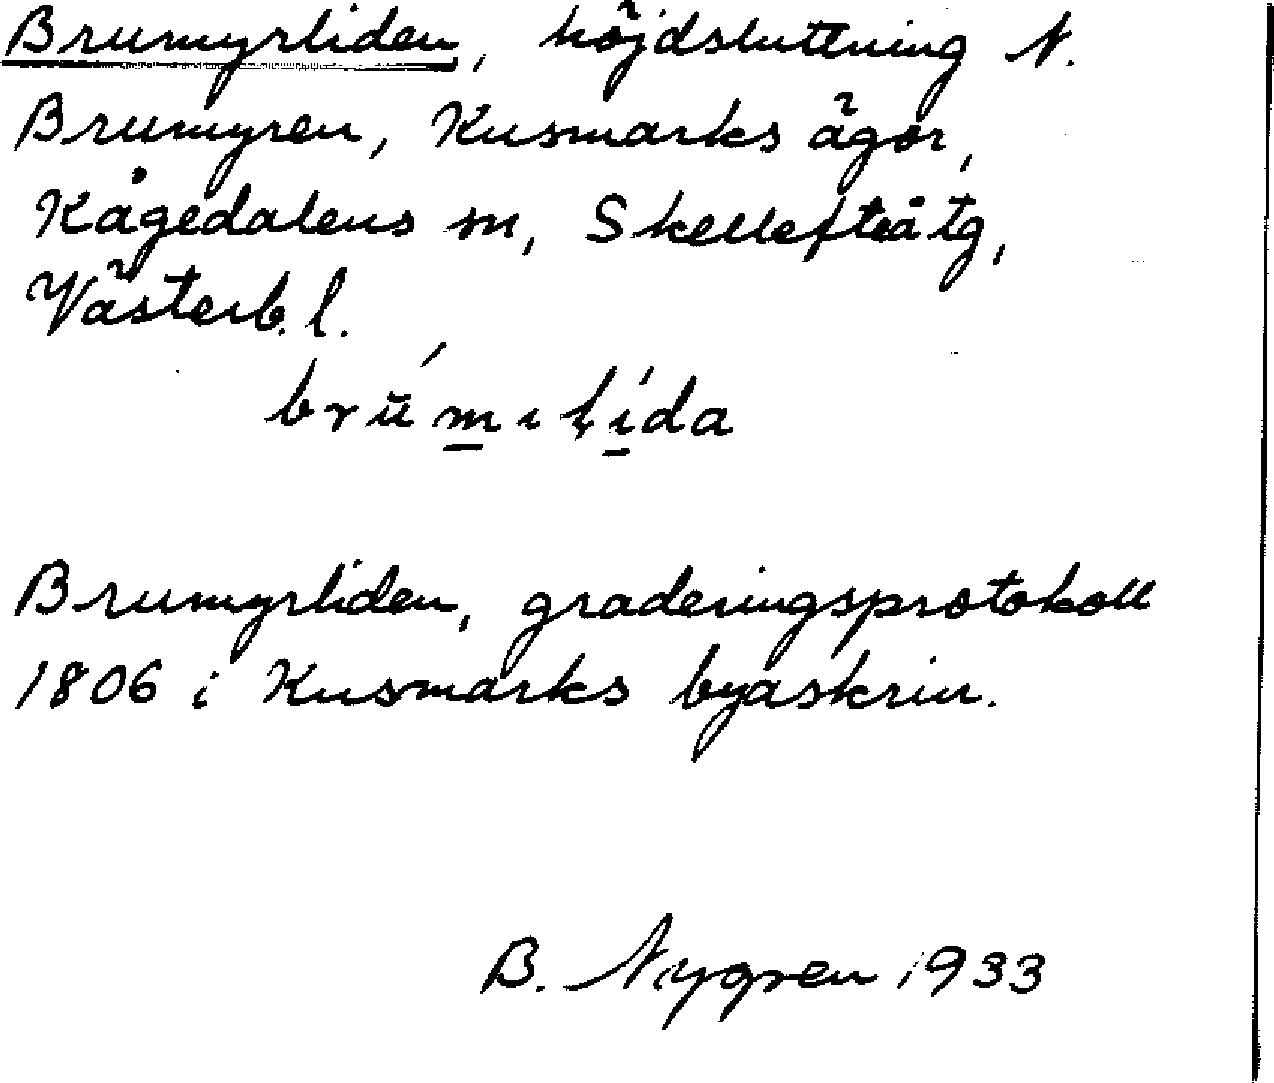 Brumyrliden, höjdsluttning N.
Brumyren, Kusmarks ägor,
Kågedalens sn, Skellefteå tg,
Västerb. l.
brū́m̲ıļí̲da
Brumyrliden, graderingsprotokoll
1806 i Kusmarks byaskrin.
B. Nygren 1933